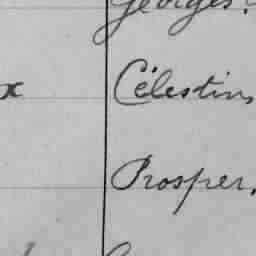 Georges.
x Célestin,
Prosper.